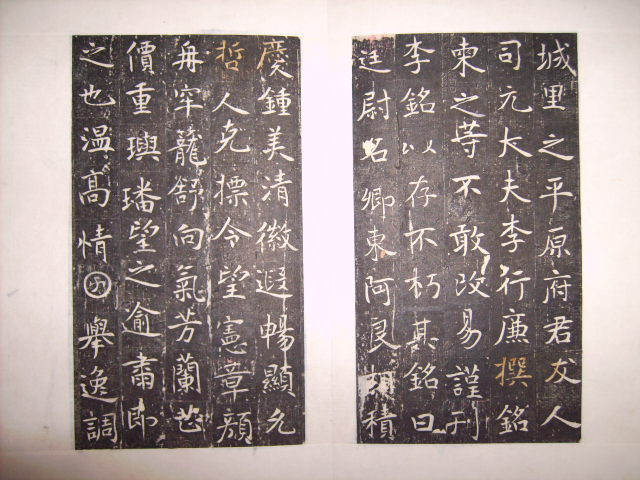 城里之平原府君友人
司元大夫李行廉撰銘
柬之等不敢改易謹刊
李銘以存不朽其銘曰
廷尉名卿東阿良相積
慶鍾美清徽遐暢顯允
哲人克摽令望憲章顏
冉牢籠舒向氣芳蘭芷
價重璵璠望之逾肅即
之也温高情舉逸調